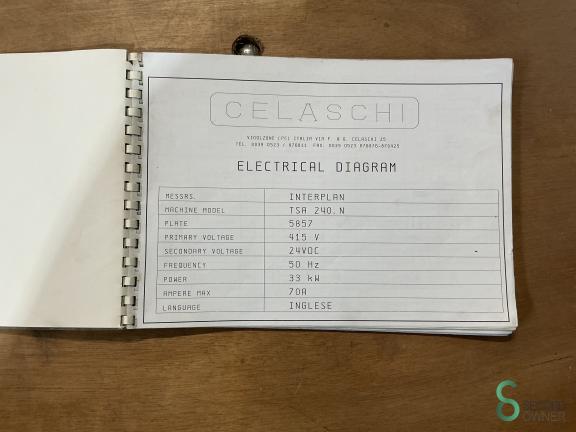 CELASCHI
VIGOLZONE (PC) ITALIA VIA P. & G. CELASCHI 25
TEL. 0039 0523 / 870811 FAX. 0039 0523
ELECTRICAL DIAGRAM
MESSRS. INTERPLAN
MACHINE MODEL TSA 240.N
PLATE 5857
PRIMARY VOLTAGE 415 V
SECONDARY VOLTAGE 24VDC
FREQUENCY 50 Hz
POWER 33 kW
AMPERE MAX 70A
LANGUAGE INGLESE
SECOND
OWNER